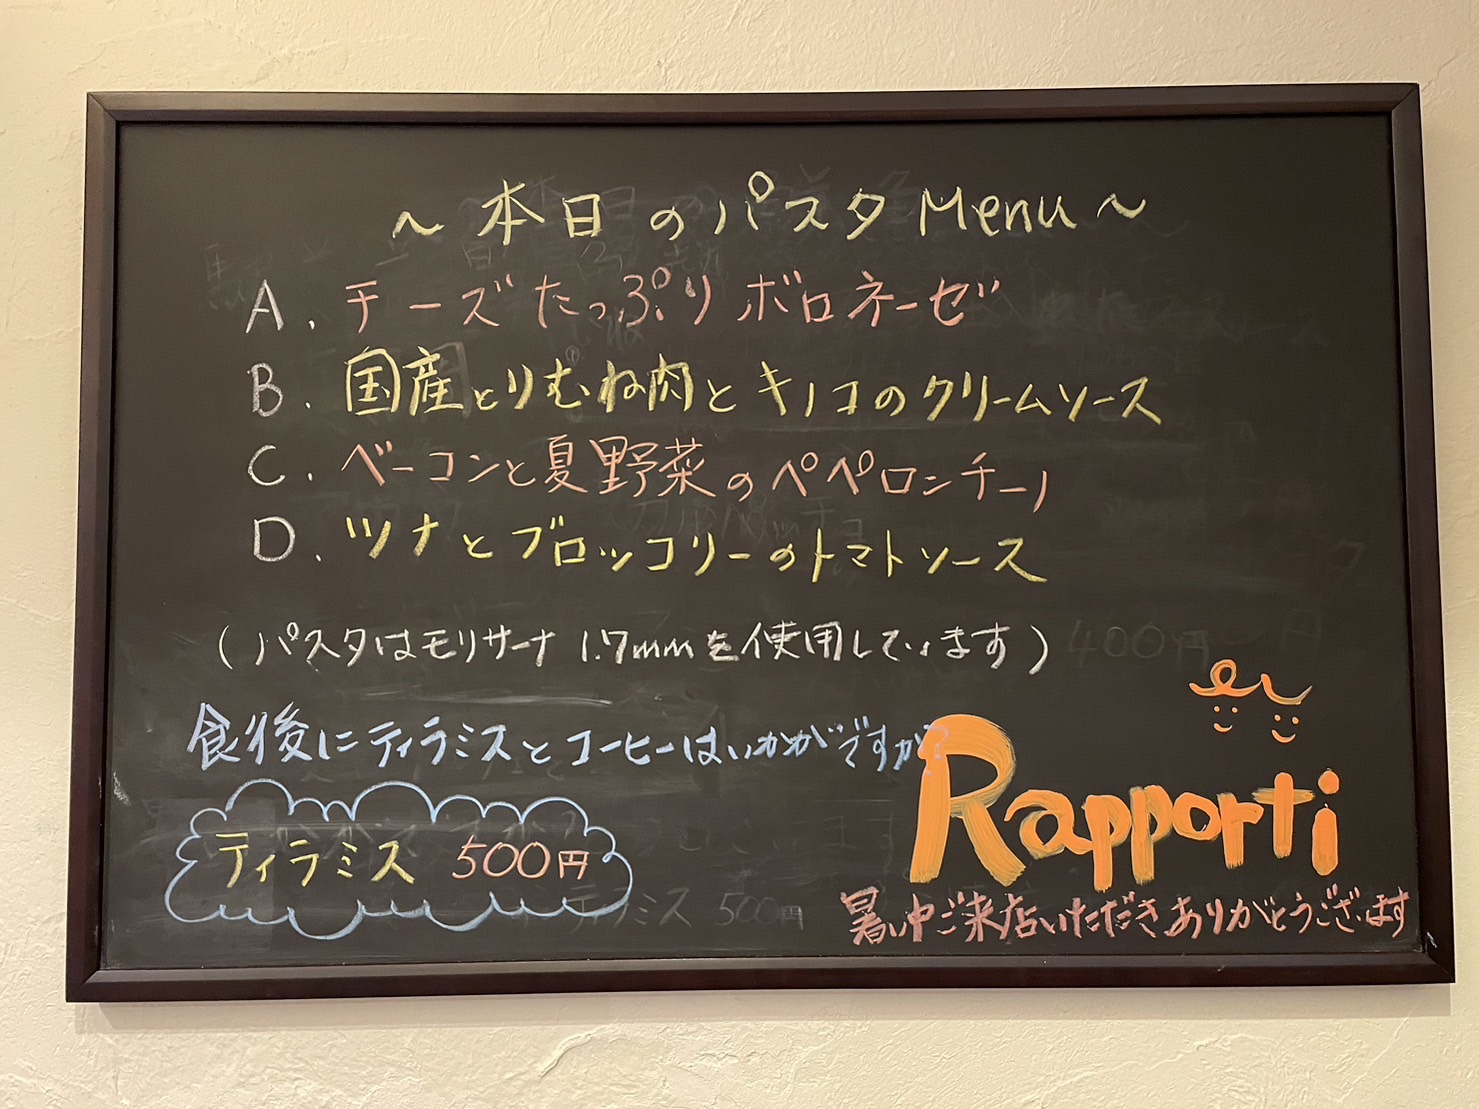 ～本日のパスタMenu～
A. チーズたっぷりボロネーゼ
B. 国産とりむね肉とキノコのクリームソース
C. ベーコンと夏野菜のペペロンチーノ
D. ツナとブロッコリーのトマトソース
(パスタはモリサーナ 1.7mmを使用しています)
食後にティラミスとコーヒーはいかがですか?
ティラミス 500円
Rapporti
暑い中ご来店いただきありがとうございます